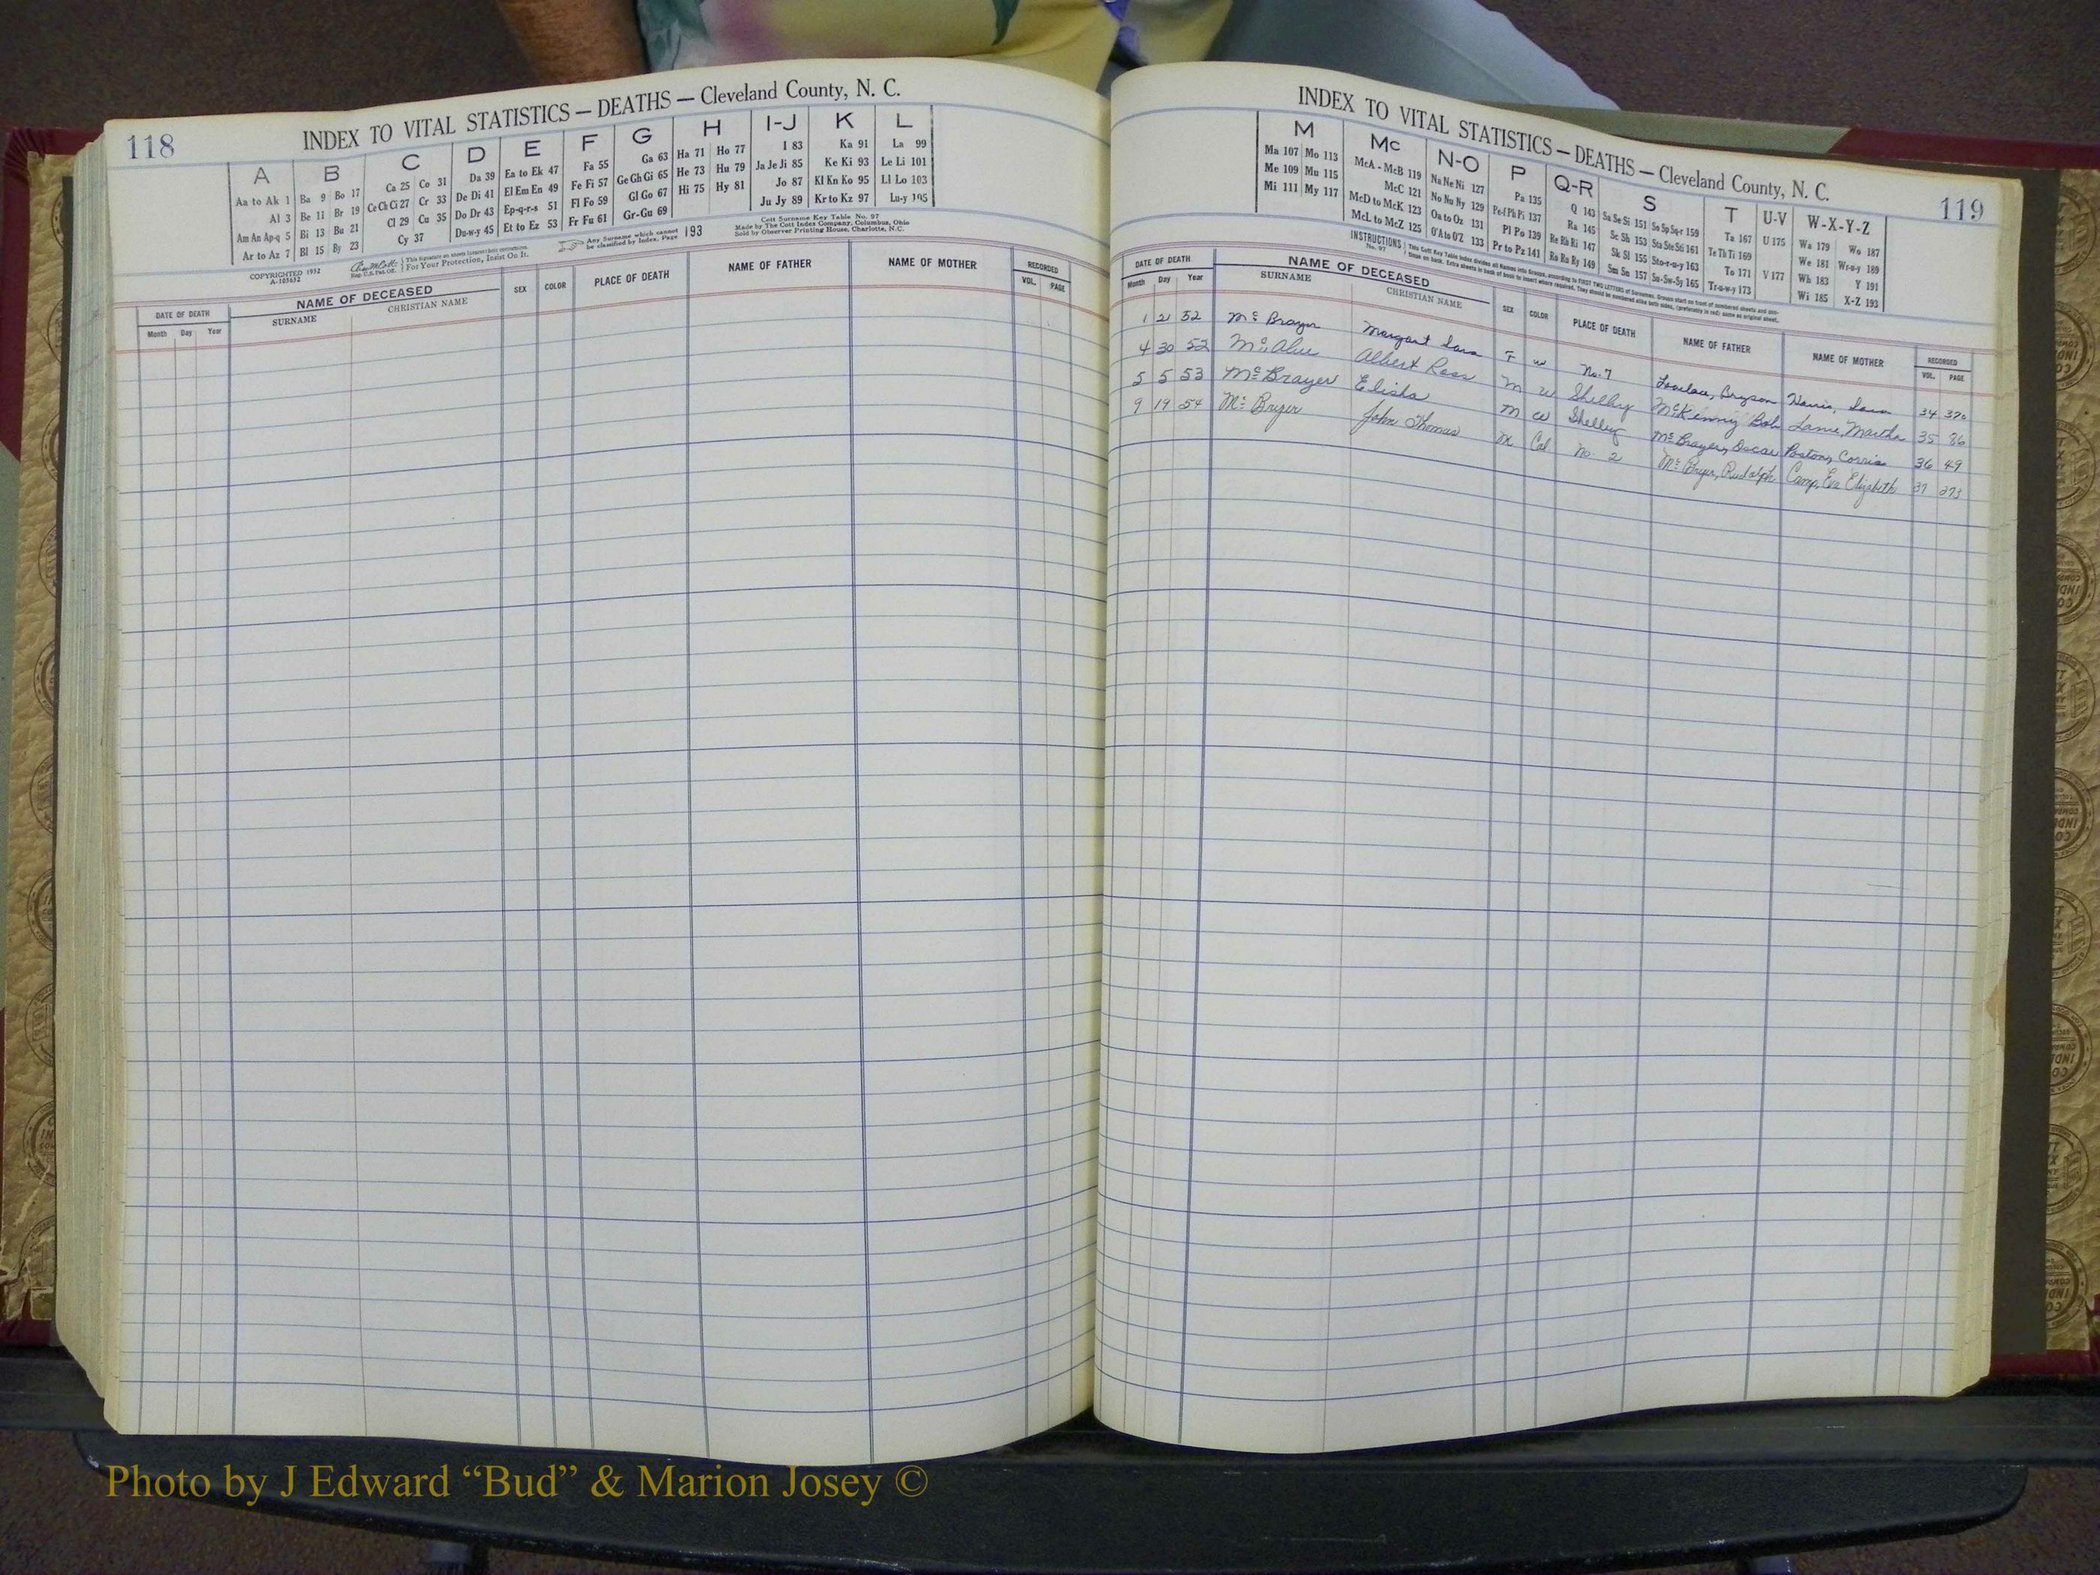 118
INDEX TO VITAL STATISTICS — DEATHS — Cleveland County, N. C.
A B C D E F G H I-J K L
Aa to Ak 1 Ba 9 Bo 17 Ca 25 Co 31 Da 39 Ea to Ek 47 Fa 55 Ga 63 Ha 71 Ho 77 I 83 Ka 91 La 99
Al 3 Be 11 Br 19 Ce Ch Ci 27 Cr 33 De Di 41 El Em En 49 Fe Fi 57 Ge Gh Gi 65 He 73 Hu 79 Ja Je Ji 85 Ke Ki 93 Le Li 101
Am An Ap-q 5 Bi 13 Bu 21 Cl 29 Cu 35 Do Dr 43 Ep-q-r-s 51 Fl Fo 59 Gl Go 67 Hi 75 Hy 81 Jo 87 Kl Kn Ko 95 Ll Lo 103
Ar to Az 7 Bl 15 By 23 Cy 37 Du-w-y 45 Et to Ez 53 Fr Fu 61 Gr-Gu 69 Ju Jy 89 Kr to Kz 97 Lu-y 105
COPYRIGHTED 1932
A-103632
For Your Protection, Insist On It.
Any Surname which cannot be classified by Index. Page 193
Cott Surname Key Table No. 97
Made by The Cott Index Company, Columbus, Ohio
Sold by Observer Printing House, Charlotte, N.C.
DATE OF DEATH NAME OF DECEASED SEX COLOR PLACE OF DEATH NAME OF FATHER NAME OF MOTHER RECORDED
Month Day Year SURNAME CHRISTIAN NAME VOL. PAGE
INDEX TO VITAL STATISTICS — DEATHS — Cleveland County, N. C.
119
M Mc N-O P Q-R S T U-V W-X-Y-Z
Ma 107 Mo 113 McA - McB 119 Na Ne Ni 127 Pa 135 Q 143 Sa Se Si 151 So Sp Sq-r 159 Ta 167 U 175 Wa 179 Wo 187
Me 109 Mu 115 McC 121 No Nu Ny 129 Pe-f Ph Pi 137 Ra 145 Sc Sh 153 Sta Ste Sti 161 Te Th Ti 169 We 181 Wr-u-y 189
Mi 111 My 117 McD to McK 123 Oa to Oz 131 Pl Po 139 Re Rh Ri 147 Sk Sl 155 Sto-r-u-y 163 To 171 V 177 Wh 183 Y 191
McL to McZ 125 O'A to O'Z 133 Pr to Pz 141 Ro Ru Ry 149 Sm Sn 157 Su-Sw-Sy 165 Tr-u-w-y 173 Wi 185 X-Z 193
INSTRUCTIONS No. 97
DATE OF DEATH NAME OF DECEASED SEX COLOR PLACE OF DEATH NAME OF FATHER NAME OF MOTHER RECORDED
Month Day Year SURNAME CHRISTIAN NAME VOL. PAGE
1 21 52 McBrayer Margaret Sara F W No. 7 Lovelace, Bryson Harris, Sara 34 370
4 30 52 Albert Ross M W Shelby McKinny Bob Martha 35 86
5 5 53 McBrayer Elisha M W Shelby McBrayer, Oscar Poston, Corrie 36 49
9 19 54 McBryer John Thomas M Col No. 2 McBryer, Rudolph Camp, Eva Elizabeth 37 273
Photo by J Edward “Bud” & Marion Josey ©